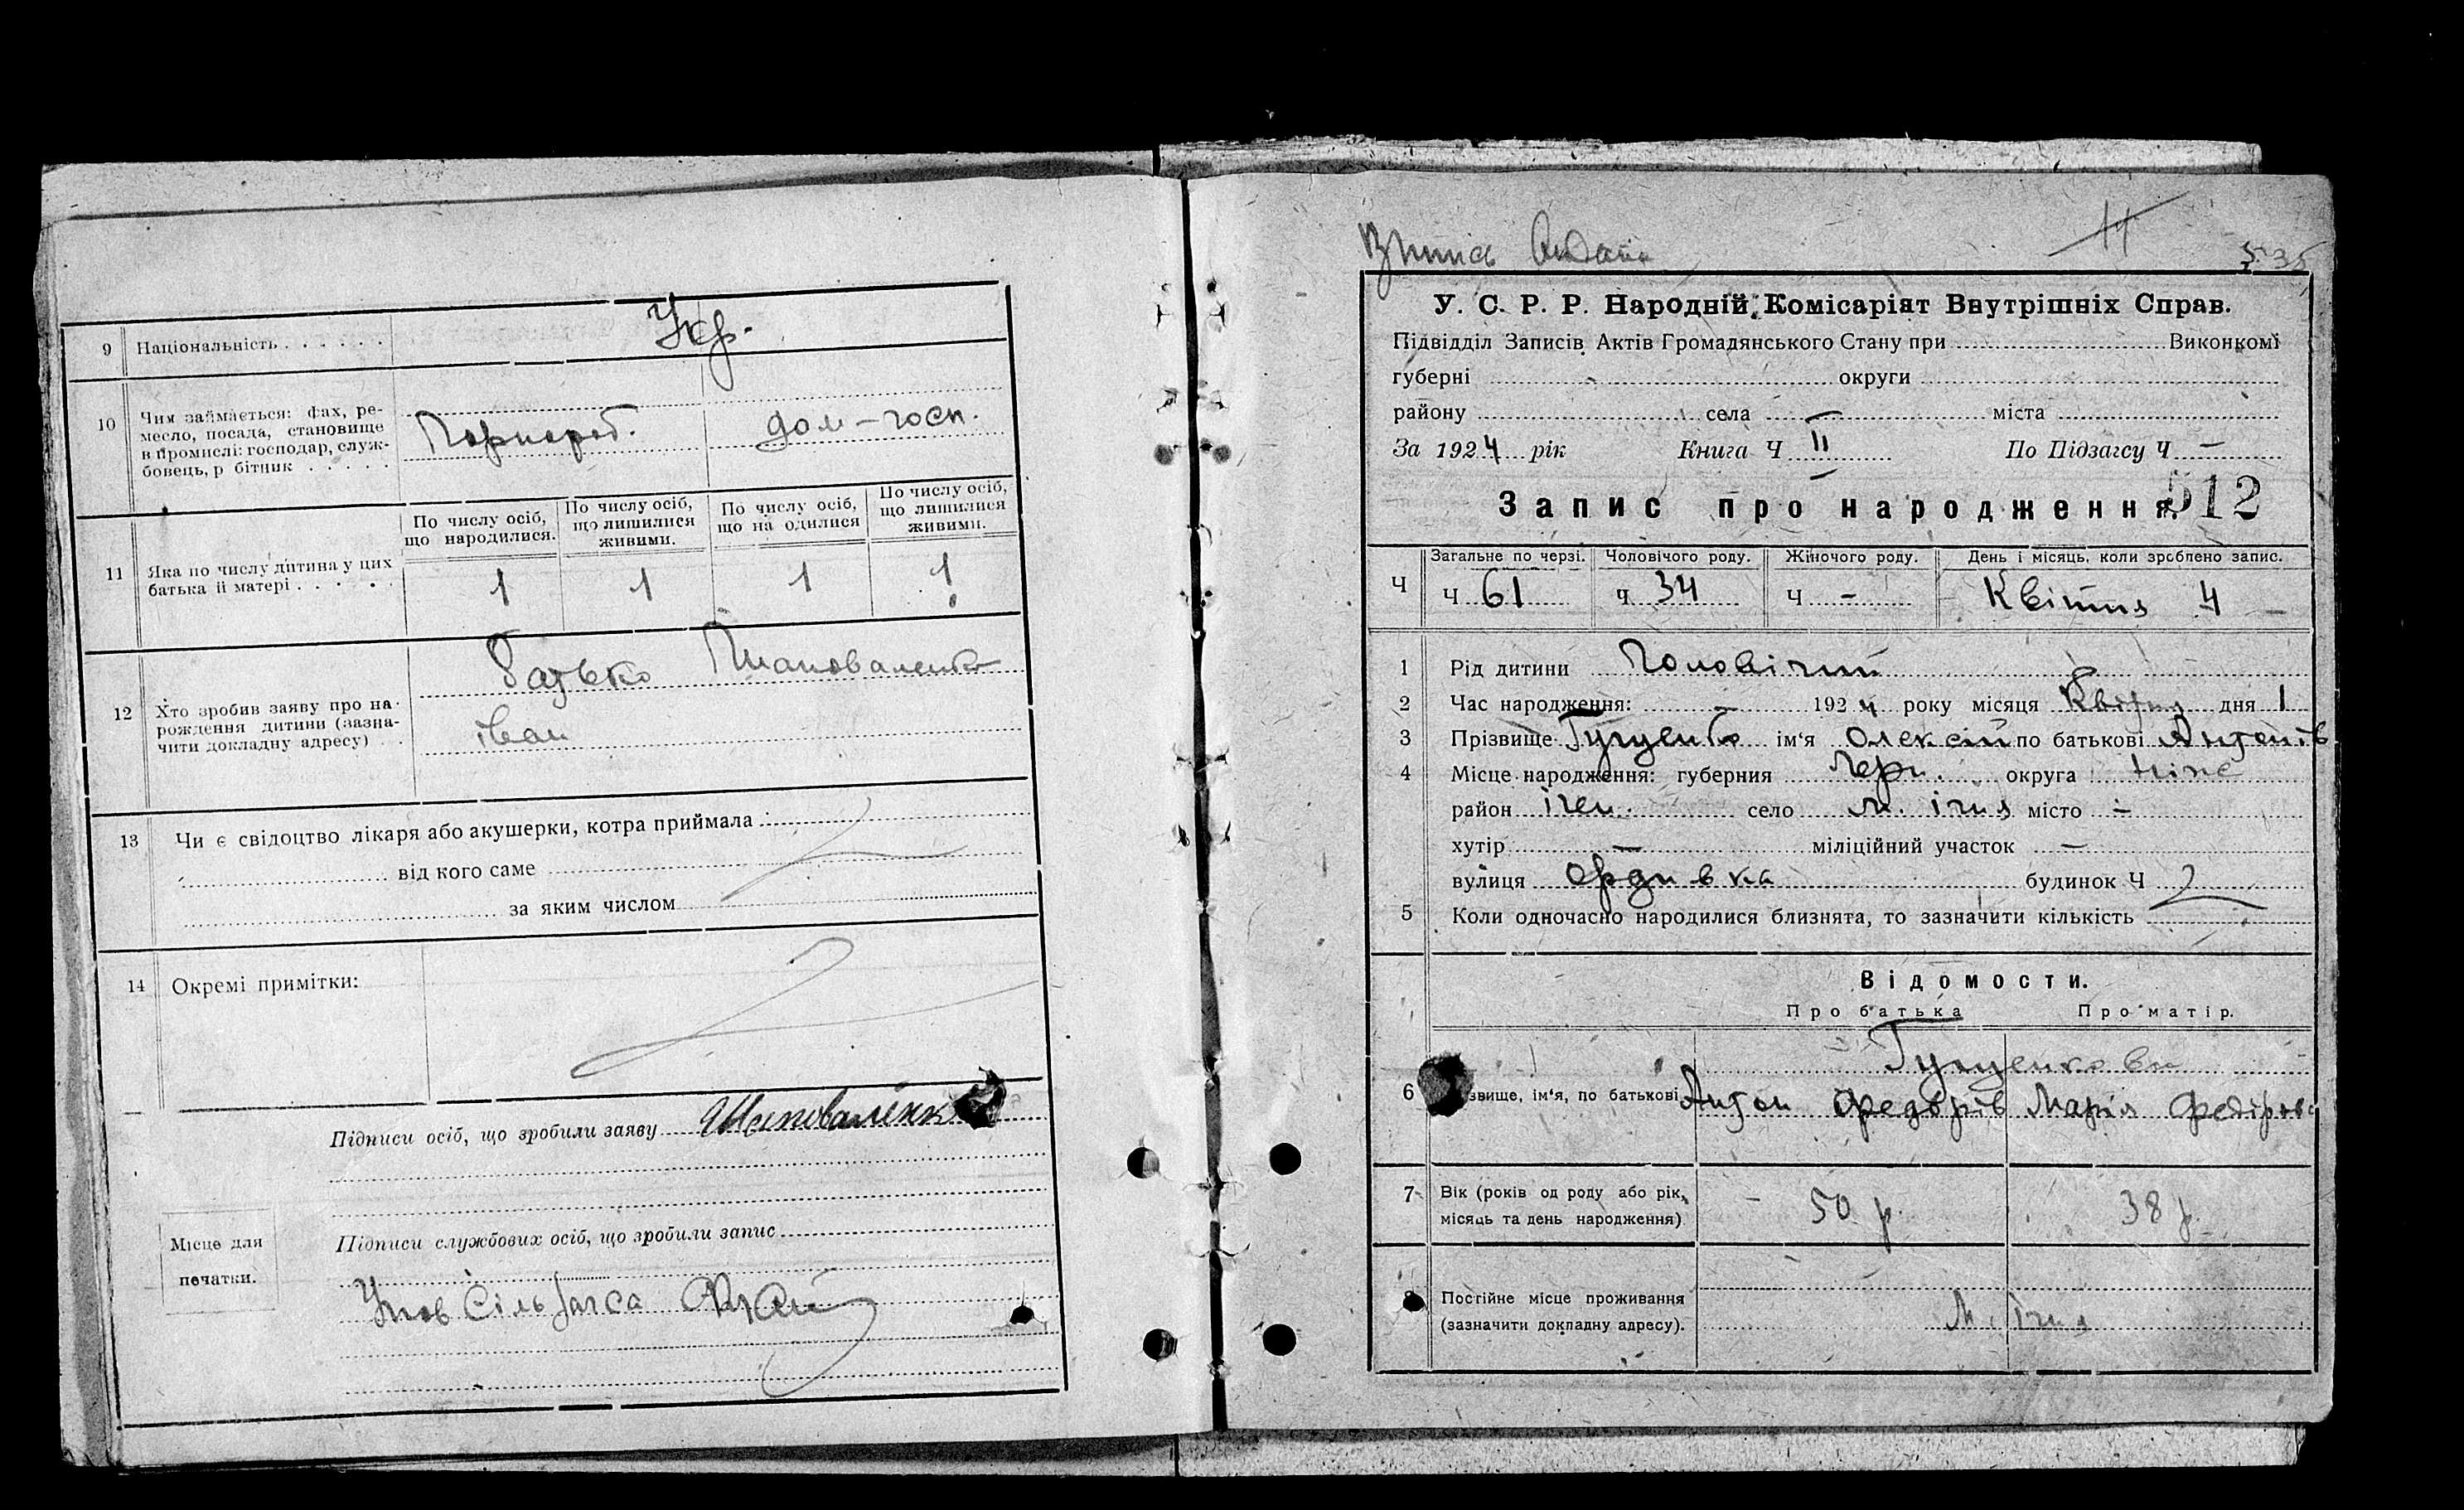 9 Національність . . . . . . Укр.
10 Чим займається: фах, ре-
месло, посада, становище
в промислі: господар, служ-
бовець, р бітник . . . . .
Чорнороб. дом-госп.
11 Яка по числу дитина у цих
батька іі матері . . . . .
По числу осіб,
що народилися.
По числу осіб,
що лишилися
живими.
По числу осіб,
що на одилися
По числу осіб,
що лишилися
живими.
1 1 1 1
12 Хто зробив заяву про на-
рождення дитини (зазна-
чити докладну адресу) . .
Батько Шаповаленко
іван
13 Чи є свідоцтво лікаря або акушерки, котра приймала
від кого саме
за яким числом
14 Окремі примітки:
Підписи осіб, що зробили заяву Шаповаленк
Місце для
печатки.
Підписи службових осіб, що зробили запис
Упов Сільзагса
Випись
11
535
У. С. Р. Р. Народній Комісаріят Внутрішніх Справ.
Підвідділ Записів Актів Громадянського Стану при Виконкомі
губерні округи
району села міста
За 1924 рік Книга Ч II По Підзагсу Ч -
Запис про народження.
512
Ч
Загальне по черзі. Чоловічого роду. Жіночого роду. День і місяць, коли зроблено запис.
Ч 61 Ч 34 Ч - Квітня 4
1 Рід дитини Чоловічий
2 Час народження: - 1924 року місяця Квітня дня 1
3 Прізвище Гуценко ім'я Олексій по батькові Антонів
4 Місце народження: губерния Черн. округа Ніже
район ічен. село м. ічня місто -
хутір - міліційний участок -
вулиця будинок Ч
5 Коли одночасно народилися близнята, то зазначити кількість
Відомости.
Про батька Про матір.
Гуценкови
6 звище, ім'я, по батькові Антон Федорів Марія Федіров
7 Вік (років од роду або рік,
місяць та день народження)
50 р. 38 р.
8 Постійне місце проживання
(зазначити докладну адресу).
м. ічня